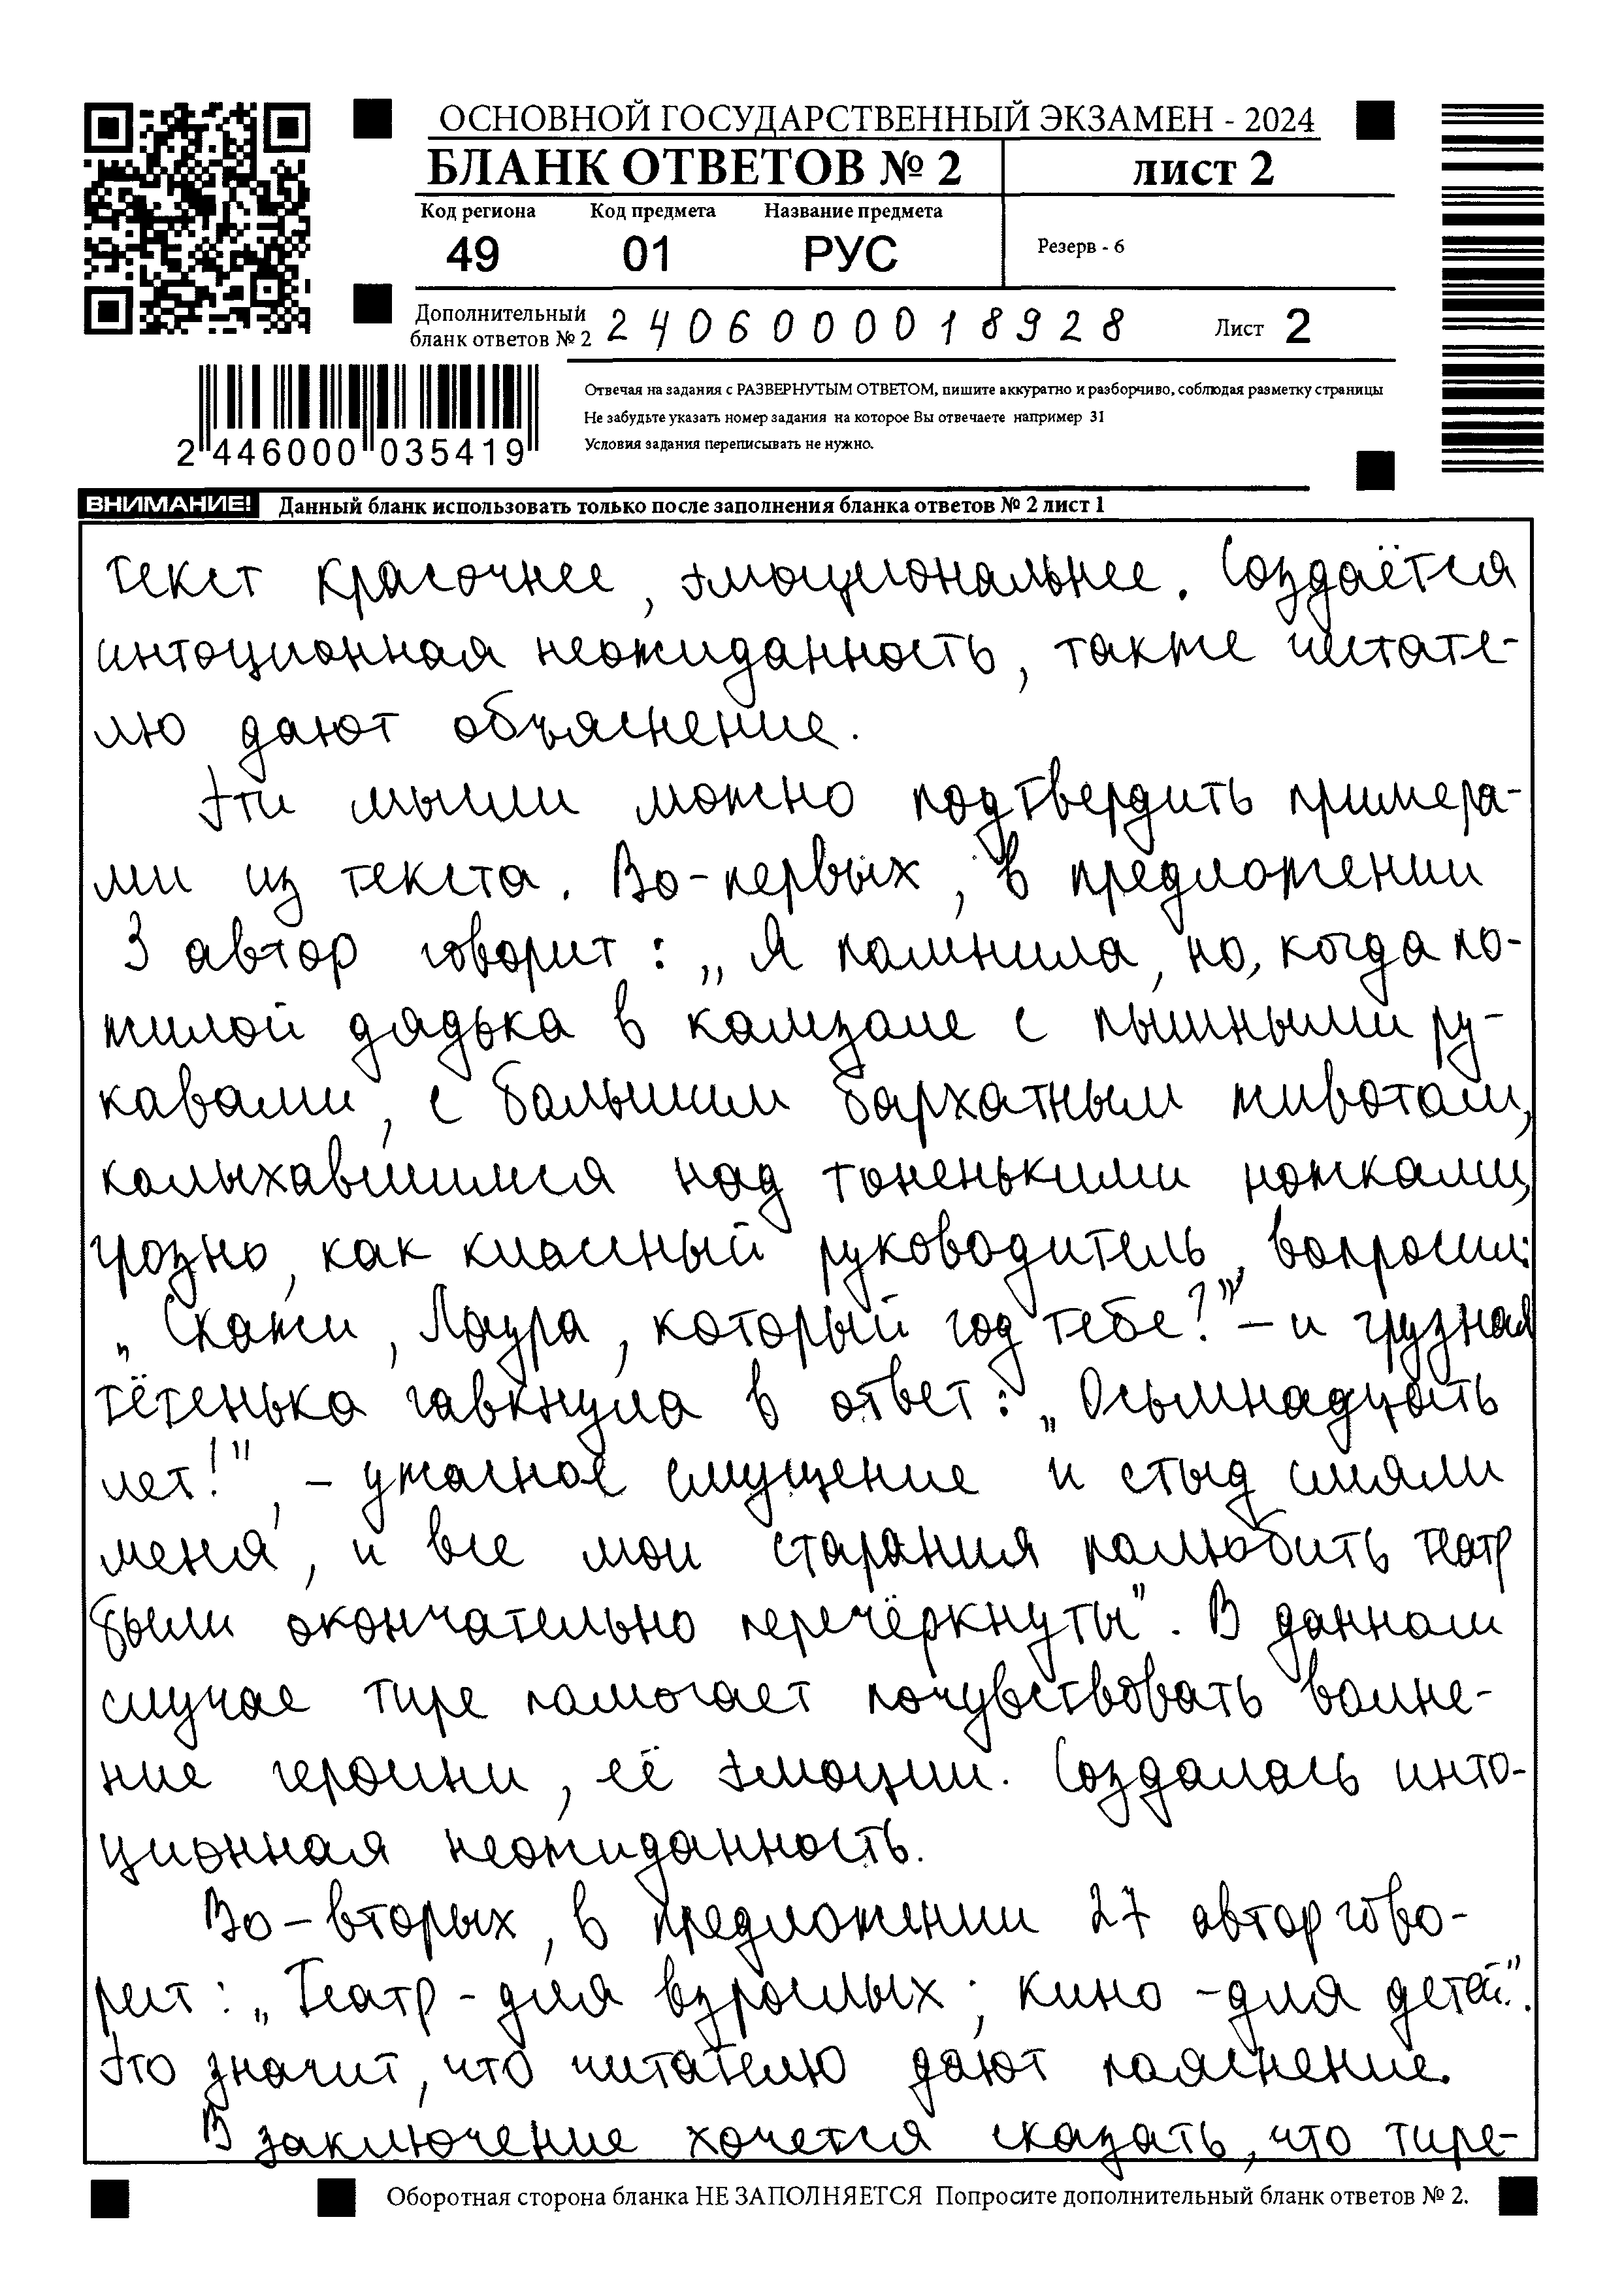 ОСНОВНОЙ ГОСУДАРСТВЕННЫЙ ЭКЗАМЕН - 2024
БЛАНК ОТВЕТОВ № 2
лист 2
Код региона Код предмета Название предмета
49 01 РУС
Резерв - 6
Дополнительный
бланк ответов № 2 2406000018928
Лист 2
2 446000 035419
Отвечая на задания с РАЗВЕРНУТЫМ ОТВЕТОМ, пишите аккуратно и разборчиво, соблюдая разметку страницы
Не забудьте указать номер задания на которое Вы отвечаете например 31
Условия задания переписывать не нужно.
ВНИМАНИЕ! Данный бланк использовать только после заполнения бланка ответов № 2 лист 1
текст красочнее, эмоциональнее. Создаётся
интоционная неожиданность, также читате-
лю дают объяснение.
Эти мысли можно подтвердить примера-
ми из текста. Во-первых, в предложении
3 автор говорит: „Я помнила, но, когда по-
жилой дядька в камзоле с пышными ру-
кавами, с большим бархатным животом,
колыхавшимся над тоненькими ножками,
грозно, как классный руководитель, вопросил:
„Скажи, Лаура, который год тебе?" – и грузная
тётенька гавкнула в ответ: „Осьмнадцать
лет!", – ужасное смущение и стыд смяли
меня, и все мои старания полюбить театр
были окончательно перечёркнуты". В данном
случае тире помогает почувствовать волне-
ние героини, её эмоции. Создалась инто-
ционная неожиданность.
Во-вторых, в предложении 27 автор гово-
рит: „Театр - для взрослых; кино - для детей".
Это значит, что читателю дают пояснение.
В заключение хочется сказать, что тире-
Оборотная сторона бланка НЕ ЗАПОЛНЯЕТСЯ Попросите дополнительный бланк ответов № 2.